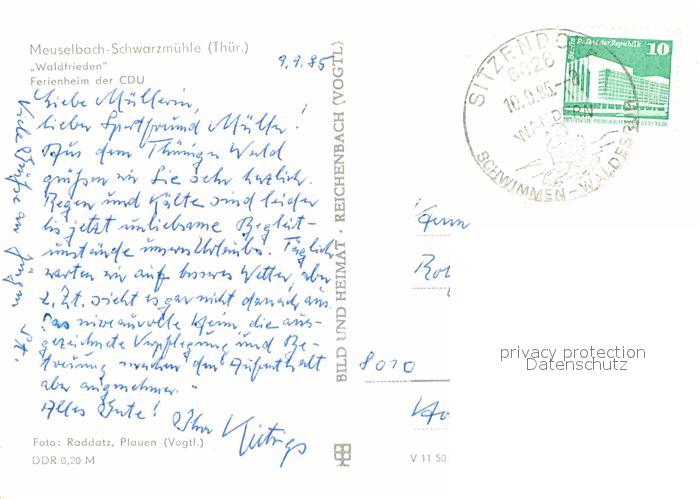 Meuselbach-Schwarzmühle (Thür.)
„Waldfrieden"
Ferienheim der CDU
9.9.85
Liebe Müllerin,
lieber Sportfreund Müller!
Aus dem Thüringer Wald
grüßen wir Sie sehr herzlich.
Regen und Kälte sind leider
bis jetzt unliebsame Begleit-
umstände unseres Urlaubs. Täglich
warten wir auf besseres Wetter, aber
z. Zt. sieht es gar nicht danach aus.
Das niveauvolle Heim, die aus-
gezeichnete Verpflegung und Be-
treuung machen den Aufenthalt
aber angenehmer.
Alles Gute! Ihre
Viele Grüße an Jürgen
Foto: Raddatz, Plauen (Vogtl.)
DDR 0,20 M
BILD UND HEIMAT · REICHENBACH (VOGTL)
V 11 50
SITZENDORF
6826
10.9.85
WANDERN
SCHWIMMEN - WALDES
Berlin Palast der Republik
10
DEUTSCHE DEMOKRATISCHE REPUBLIK
8010
privacy protection
Datenschutz